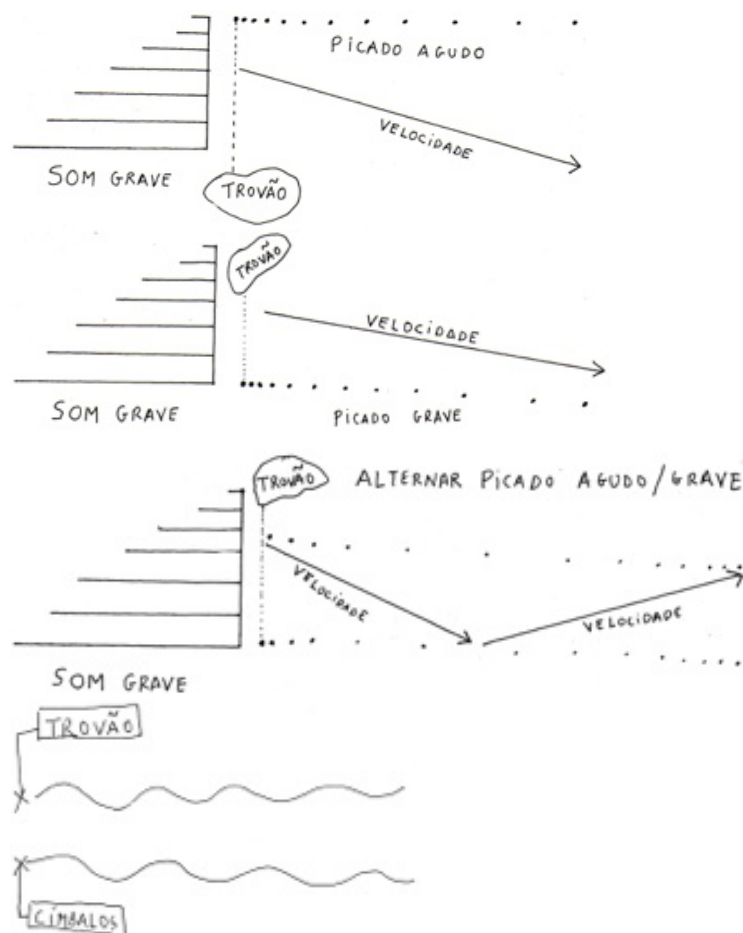 PICADO AGUDO
VELOCIDADE
SOM GRAVE
TROVÃO
TROVÃO
VELOCIDADE
SOM GRAVE
PICADO GRAVE
TROVÃO
ALTERNAR PICADO AGUDO/GRAVE
VELOCIDADE
VELOCIDADE
SOM GRAVE
TROVÃO
CÍMBALOS